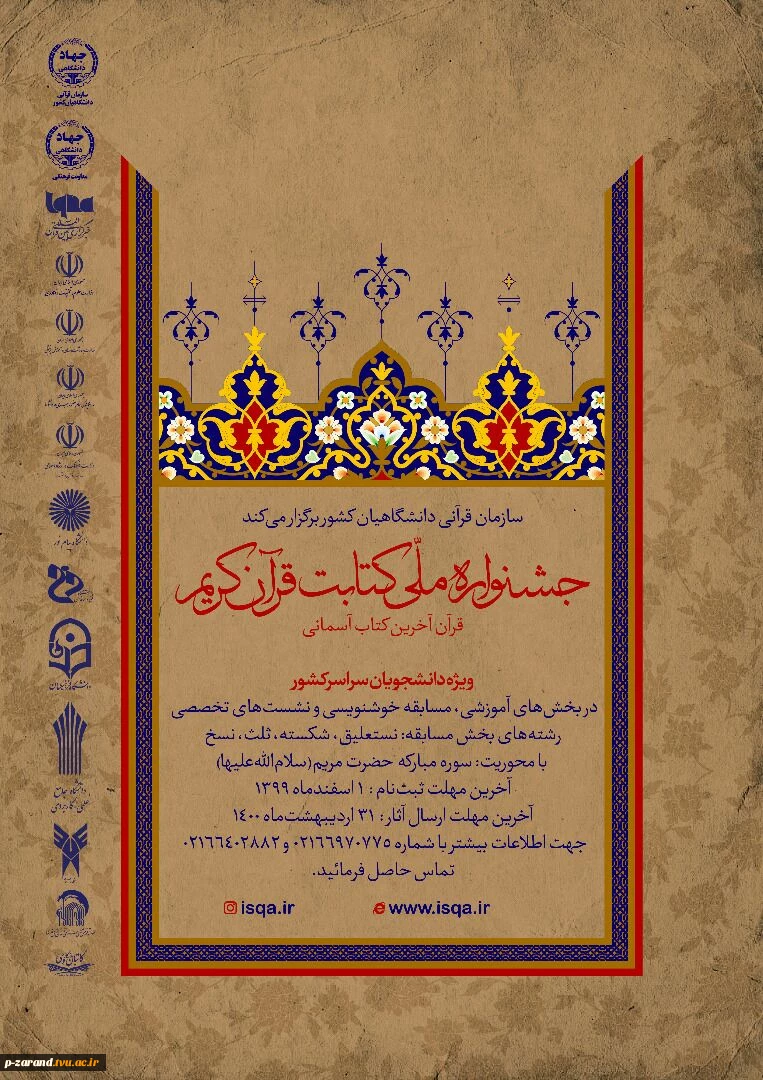 سازمان قرآنی دانشگاهیان کشور برگزار می‌کند
جشنواره ملّی کتابت قرآن کریم
قرآن آخرین کتاب آسمانی
ویژه دانشجویان سراسر کشور
در بخش‌های آموزشی، مسابقه خوشنویسی و نشست‌های تخصصی
رشته‌های بخش مسابقه: نستعلیق، شکسته، ثلث، نسخ
با محوریت: سوره مبارکه حضرت مریم (سلام‌الله‌علیها)
آخرین مهلت ثبت‌نام : ۱ اسفندماه ۱۳۹۹
آخرین مهلت ارسال آثار : ۳۱ اردیبهشت‌ماه ۱۴۰۰
جهت اطلاعات بیشتر با شماره ۰۲۱۶۶۹۷۰۷۷۵ و ۰۲۱۶۶۴۰۲۸۸۲
تماس حاصل فرمائید.
isqa.ir
www.isqa.ir
جهاد
دانشگاهی
سازمان قرآنی
دانشگاهیان کشور
جهاد
دانشگاهی
معاونت فرهنگی
iqna
دانشگاه پیام نور
دانشگاه فرهنگیان
دانشگاه جامع
علمی کاربردی
p-zarand.tvu.ac.ir